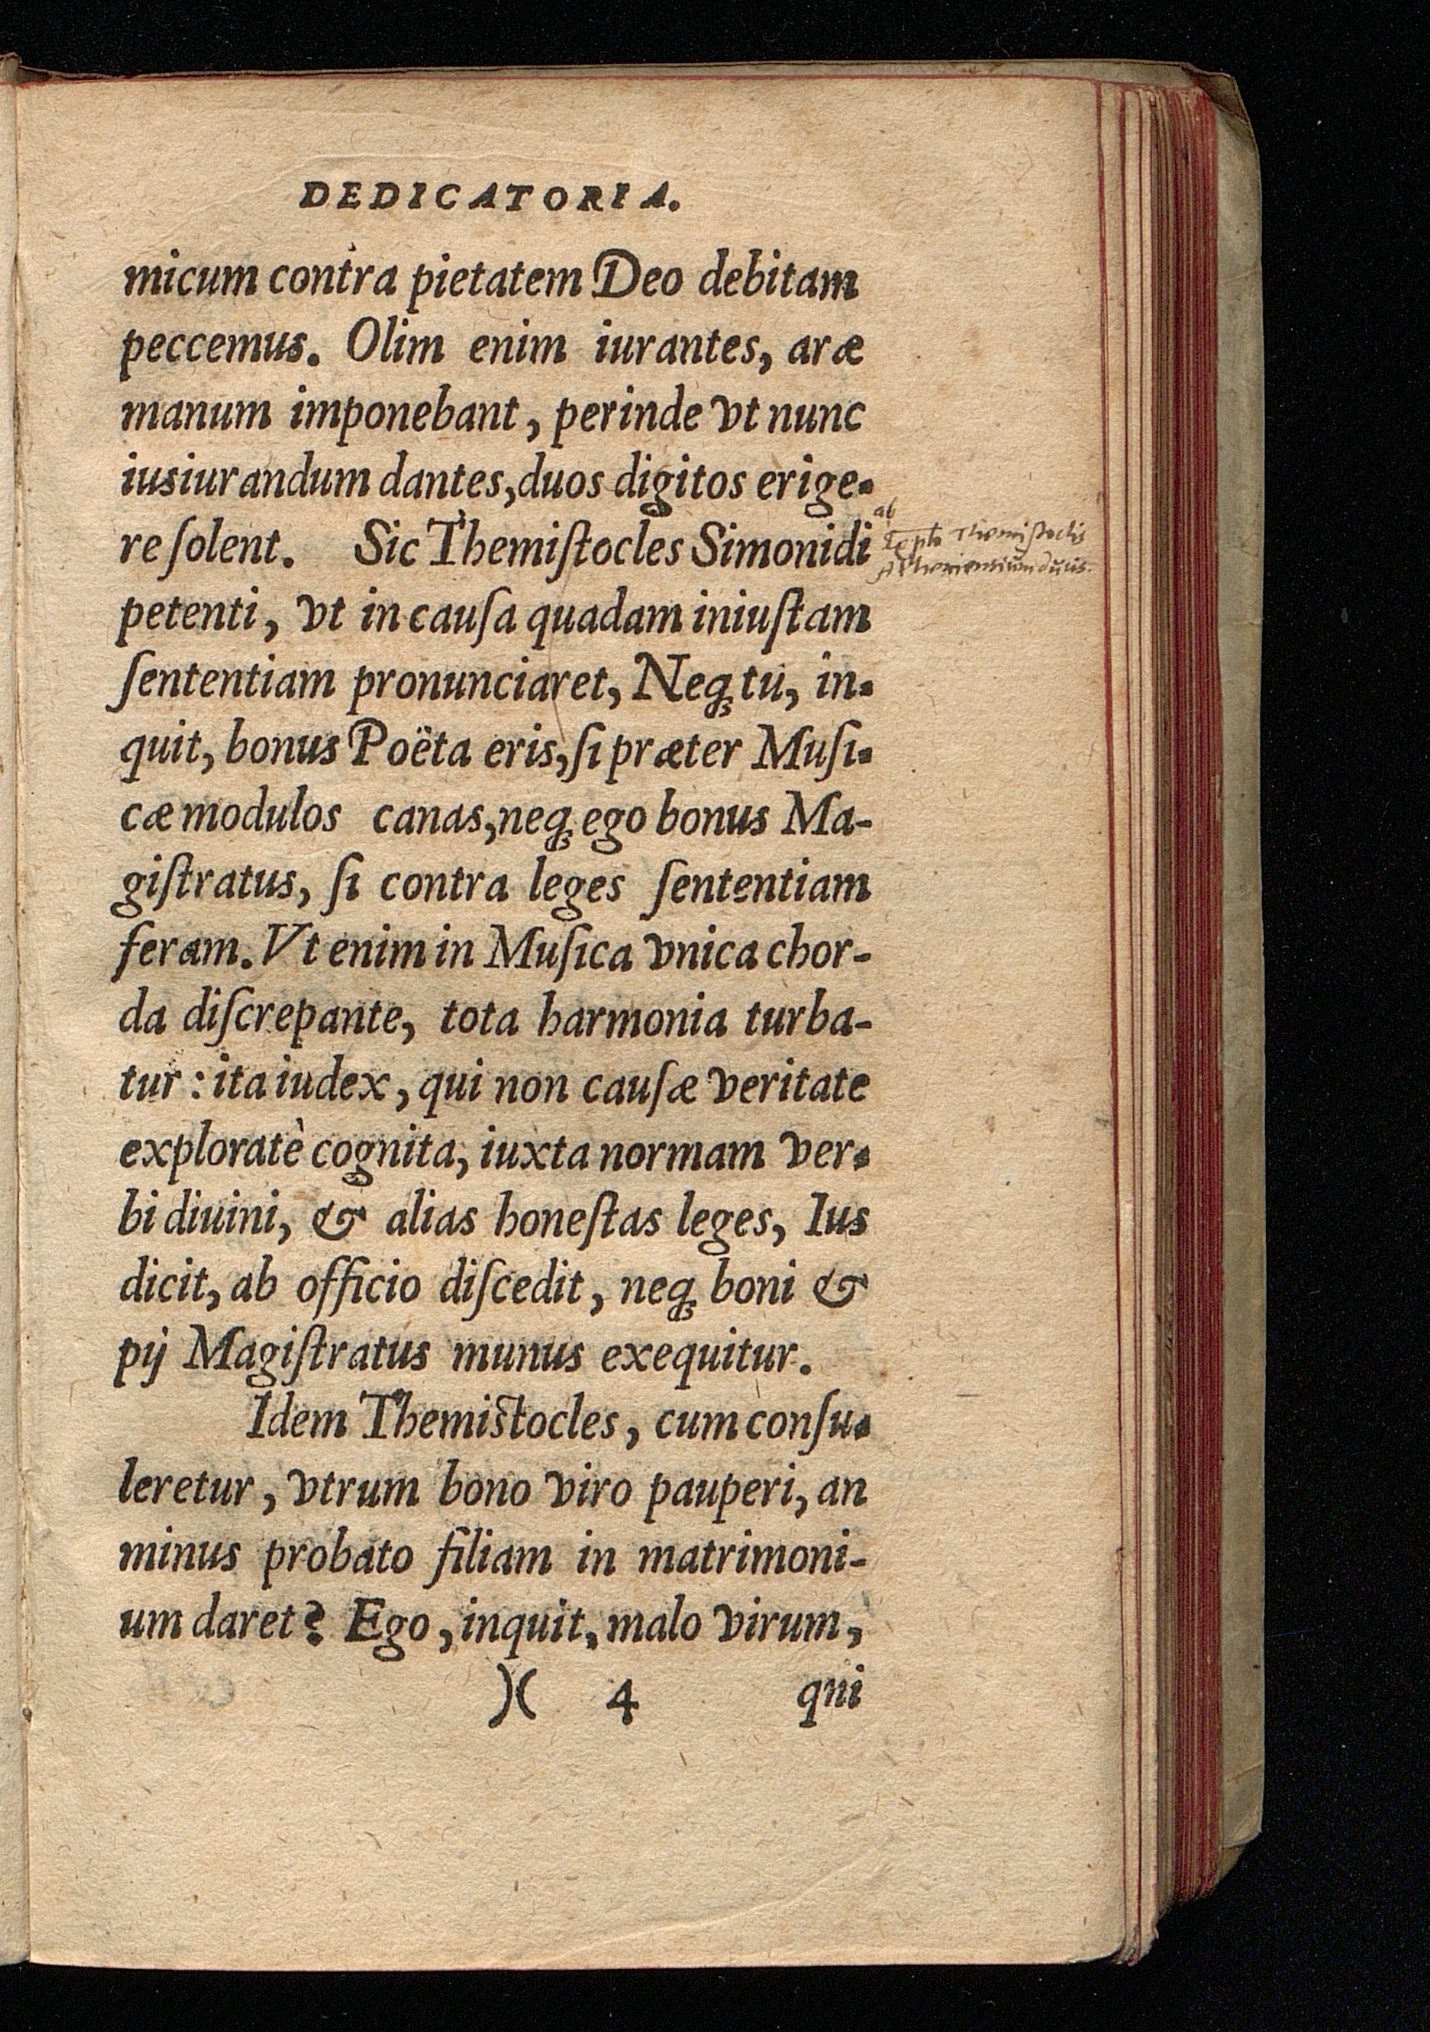 DEDICATORIA.
micum contra pietatem Deo debitam
peccemus. Olim enim iurantes, aræ
manum imponebant, perinde vt nunc
iusiurandum dantes, duos digitos erige-
re ſolent. Sic Themiſtocles Simonidi
ab
Themiſtoclis
petenti, vt in cauſa quadam iniuſtam
ſententiam pronunciaret, Neqꝫ tu, in-
quit, bonus Poëta eris, ſi præter Muſi-
cæ modulos canas, neqꝫ ego bonus Ma-
giſtratus, ſi contra leges ſententiam
feram. Vt enim in Muſica vnica chor-
da diſcrepante, tota harmonia turba-
tur: ita iudex, qui non cauſæ veritate
exploratè cognita, iuxta normam ver-
bi diuini, & alias honeſtas leges, Ius
dicit, ab officio diſcedit, neqꝫ boni &
pij Magiſtratus munus exequitur.
Idem Themiſtocles, cum conſu-
leretur, vtrum bono viro pauperi, an
minus probato filiam in matrimoni-
um daret? Ego, inquit, malo virum,
)( 4 qui